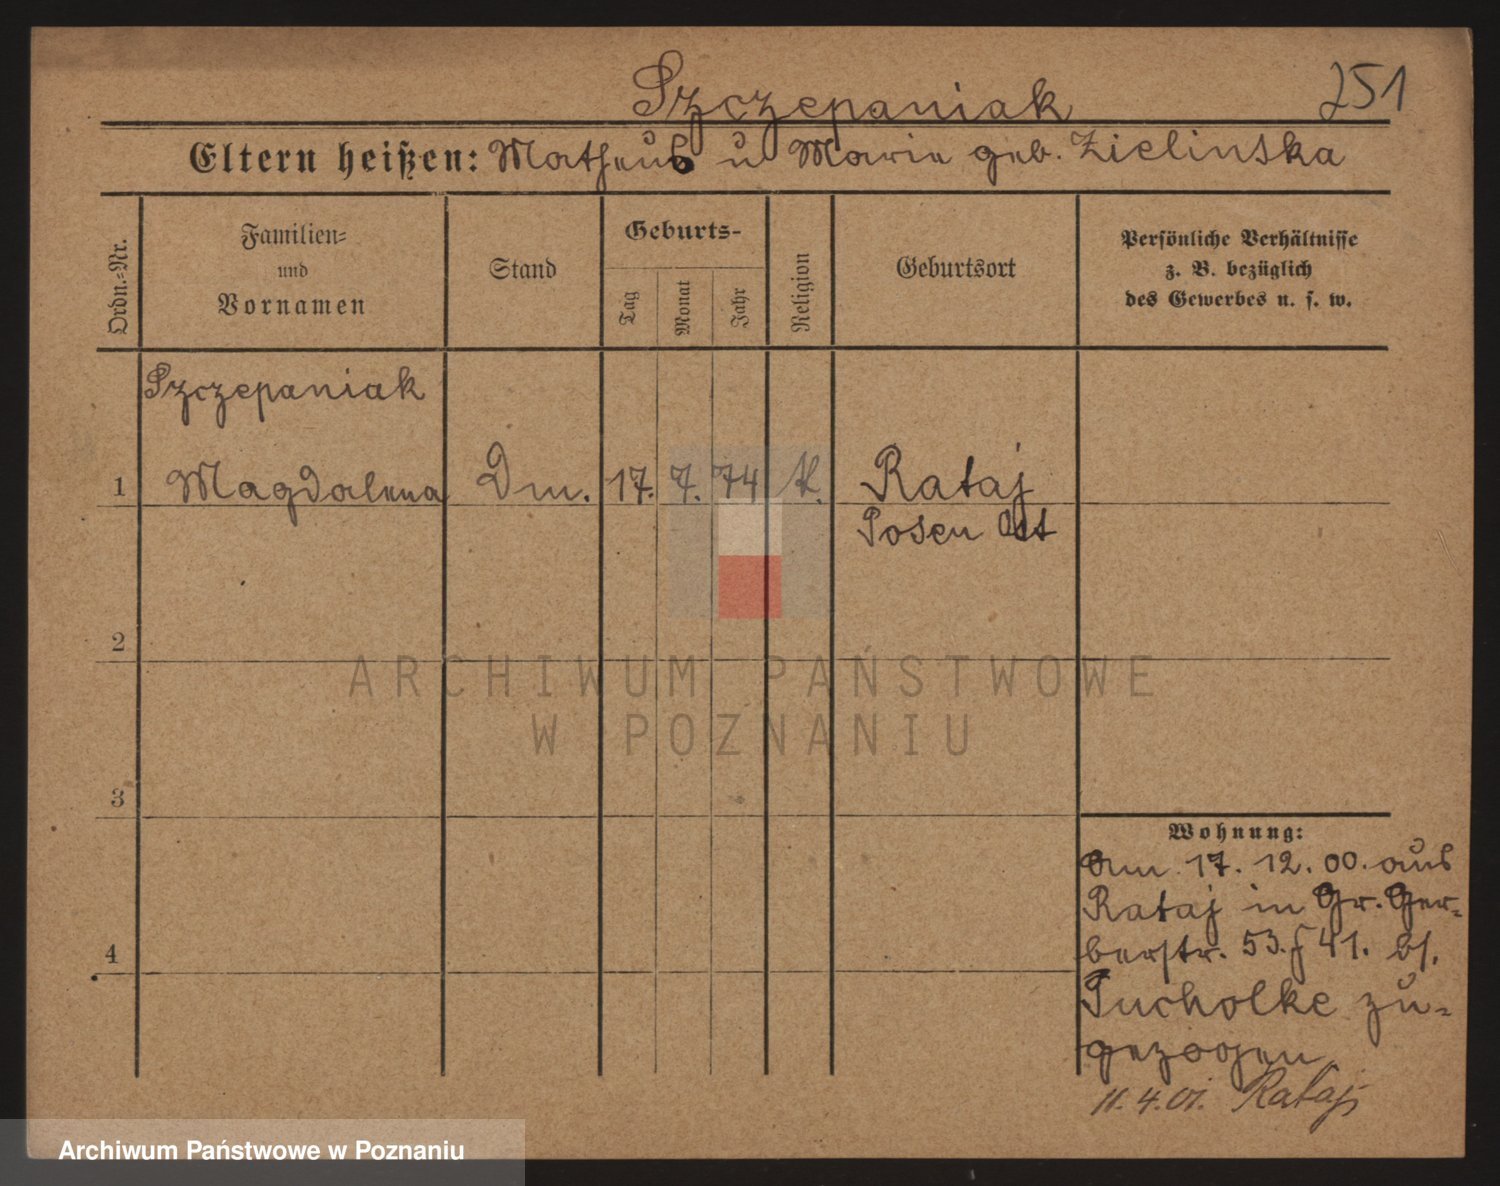 Szczepaniak 251
Eltern heißen: Matheus u Marie geb. Zielinska
Ordn.=Nr.
Familien=
und
Vornamen
Stand
Geburts-
Tag
Monat
Jahr
Religion
Geburtsort
Persönliche Verhältnisse
z. B. bezüglich
des Gewerbes u. s. w.
Szczepaniak
1 Magdalena Dm. 17. 7. 74 K. Rataj
Posen Ost
2
ARCHIWUM PAŃSTWOWE
W POZNANIU
3
Wohnung:
Am 17. 12. 00. aus
Rataj in Gr. Ger-
berstr. 53. f 41. bs.
4
Tucholke zu-
gezogen
11. 4. 01. Rataj
Archiwum Państwowe w Poznaniu